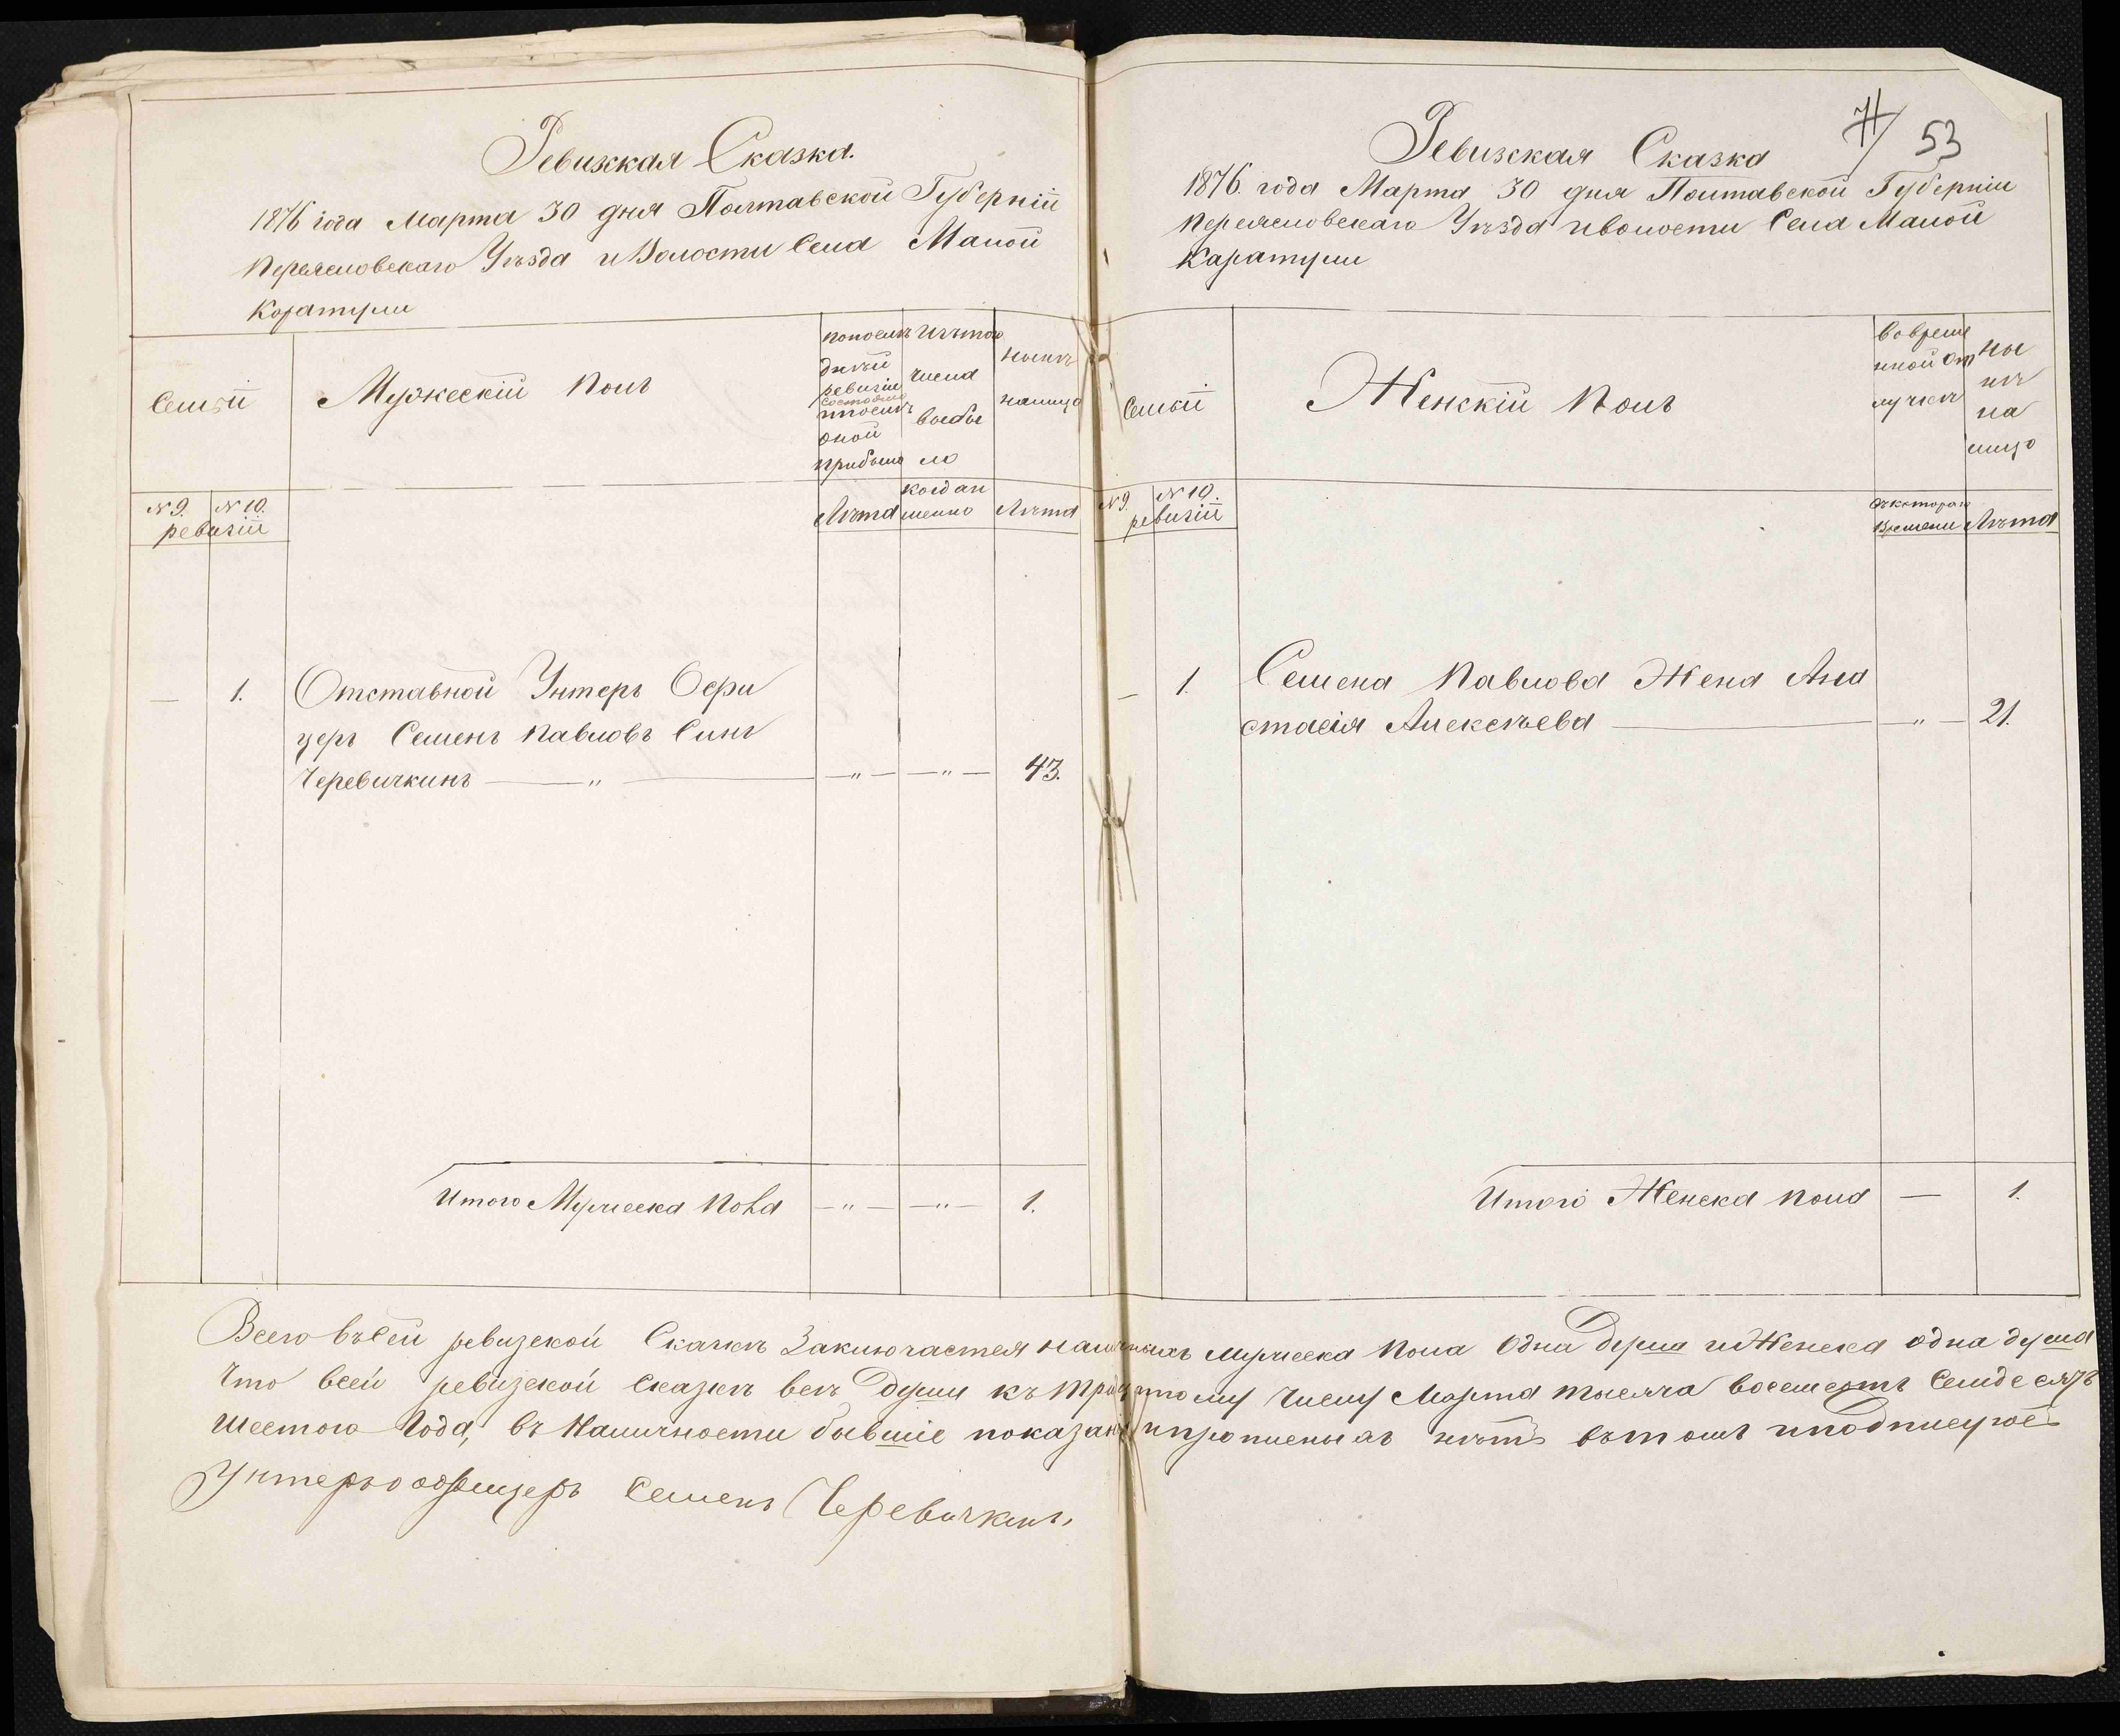 Ревижкая Сказка.
1876 года Марта 30 дня Полтавской Губерніи
Переясловскаго Уѣзда и Волости Села Малой
Коратули
Семьи
Мужескій Полъ
По послѣ
дней
ревизіи
состояло
и послѣ
оной
прибыло
Изъ того
числа
выбы
ло
Нынѣ
на лицо
№ 9. № 10.
ревизіи
Лѣта
когда и
менно
Лѣта
— 1. Отставной Унтеръ Офи
церъ Семенъ Павловъ Синъ
Черевичкинъ — „ — — „ — — „ — 43.
Итого Мужеска Пола — „ — — „ — 1.
71 53
Ревизская Сказка
1876. года Марта 30 дня Полтавской Губерніи
Переясловскаго Уѣзда и волости Села Малой
Каратули
Семьи
Женскій Полъ
Во време
нной от
лучкѣ
ны
нѣ
на
лицо
№ 9. № 10.
ревизіи
съ котораго
Времени
Лѣта
— 1. Семена Павлова Жена Ана
стасія Алексѣева — — „ — 21.
Итого Женска пола — 1.
Всего въ Сей ревизской Сказкѣ Заключается наличныхъ мужеска пола Одна Душа и Женска одна душа
Что всей ревизской сказкѣ всѣ Души къ Тридцатому Числу Марта тысяча восемсотъ Семдесятъ
шестого Года, въ Наличности бывшіе показаны и прописныхъ нѣтъ въ томъ и подписуюсь
Унтеръ офицеръ Семенъ Черевичкинъ,